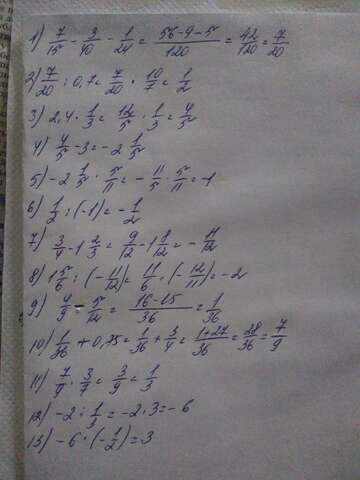 1) 7/15 - 3/40 - 1/24 = 56-9-5/120 = 42/120 = 7/20
2) 7/20 : 0,7 = 7/20 · 10/7 = 1/2
3) 2,4 · 1/3 = 12/5 · 1/3 = 4/5
4) 4/5 - 3 = -2 1/5
5) -2 1/5 · 5/11 = - 11/5 · 5/11 = -1
6) 1/2 : (-1) = - 1/2
7) 3/4 - 1 2/3 = 9/12 - 1 8/12 = - 11/12
8) 1 5/6 : (- 11/12) = 11/6 · (- 12/11) = -2
9) 4/9 - 5/12 = 16-15/36 = 1/36
10) 1/36 + 0,75 = 1/36 + 3/4 = 1+27/36 = 28/36 = 7/9
11) 7/9 · 3/7 = 3/9 = 1/3
12) -2 : 1/3 = -2 · 3 = -6
13) -6 · (- 1/2) = 3